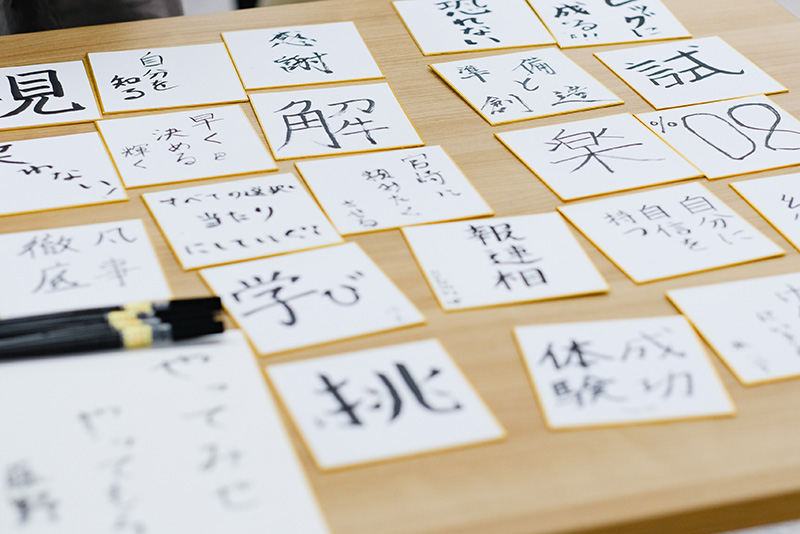 恐れない
ビッグに
成る!!!
感謝
自分を
知る
見
準備
と
創造
試
解
早く
決める
輝く
楽
%08
わない
すべての
当たり
にしていく
宮崎に
自分に
自信を
持つ
報連相
凡事
徹底
学び
成功
体験
挑
やってみせ
やっても